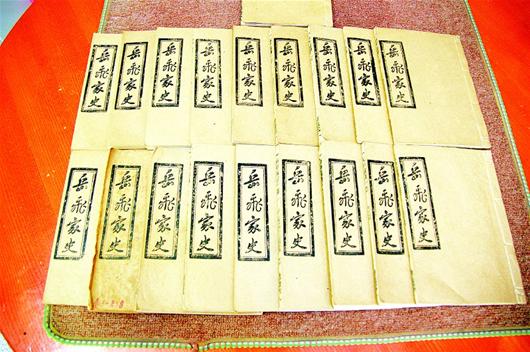 岳飛家史
岳飛家史
岳飛家史
岳飛家史
岳飛家史
岳飛家史
岳飛家史
岳飛家史
岳飛家史
岳飛家史
岳飛家史
岳飛家史
岳飛家史
岳飛家史
岳飛家史
岳飛家史
岳飛家史
岳飛家史